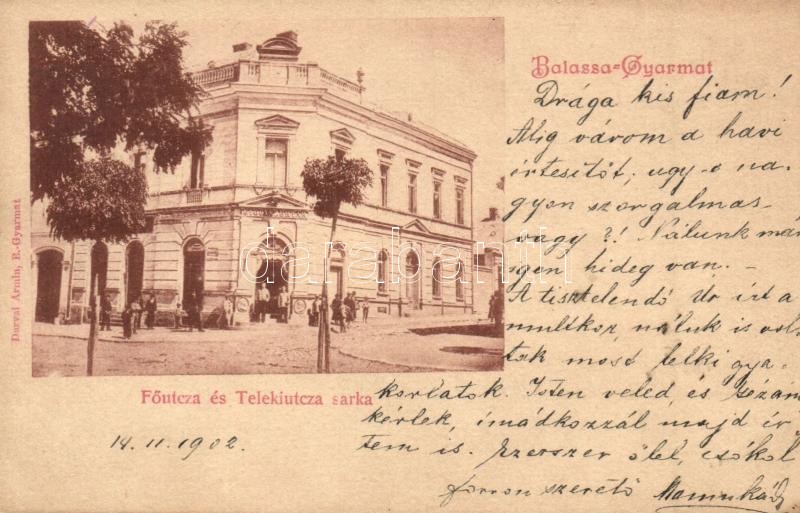 Balassa-Gyarmat
Drága kis fiam!
Alig várom a havi
értesítőt; ugy-e na-
gyon szorgalmas
vagy?! Nálunk már
igen hideg van. -
A tisztelendő Ur irt a
multkor, náluk is vol-
tak most lelki gya-
korlatok. Isten veled, és
kérlek, imádkozzál majd ér
tem is. Ezerszer ölel, csókol
forron szerető Mamukád
Főutcza és Telekiutcza sarka
14. 11. 1902.
Durvai Ármin, B.-Gyarmat
darabanth